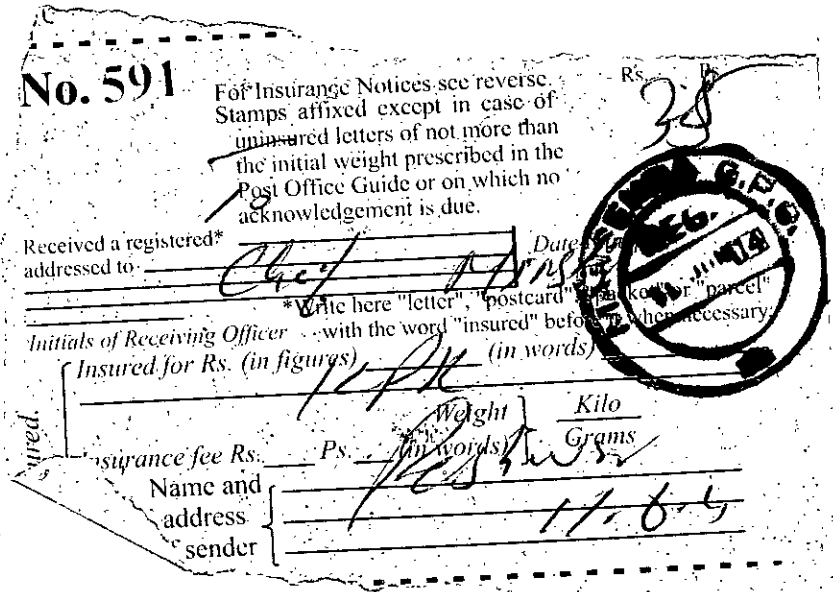 No. 591
For Insurance Notices see reverse.
Stamps affixed except in case of
uninsured letters of not more than
the initial weight prescribed in the
Post Office Guide or on which no
acknowledgement is due.
Rs. Ps.
38
Received a registered*
addressed to
Chief Minister
Date
*Write here "letter", "postcard", "packet" or "parcel"
with the word "insured" before it when necessary.
Initials of Receiving Officer
Insured for Rs. (in figures) (in words)
KPK
Weight
(in words)
Kilo
Grams
Insurance fee Rs. Ps.
Peshawar
Name and
address
of sender
11.6.4
G.P.O.